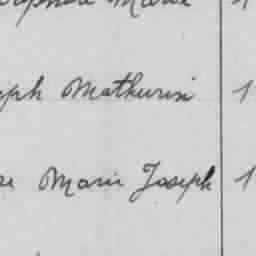 Marie 1
ph Mathurin 1
se Marie Joseph 1